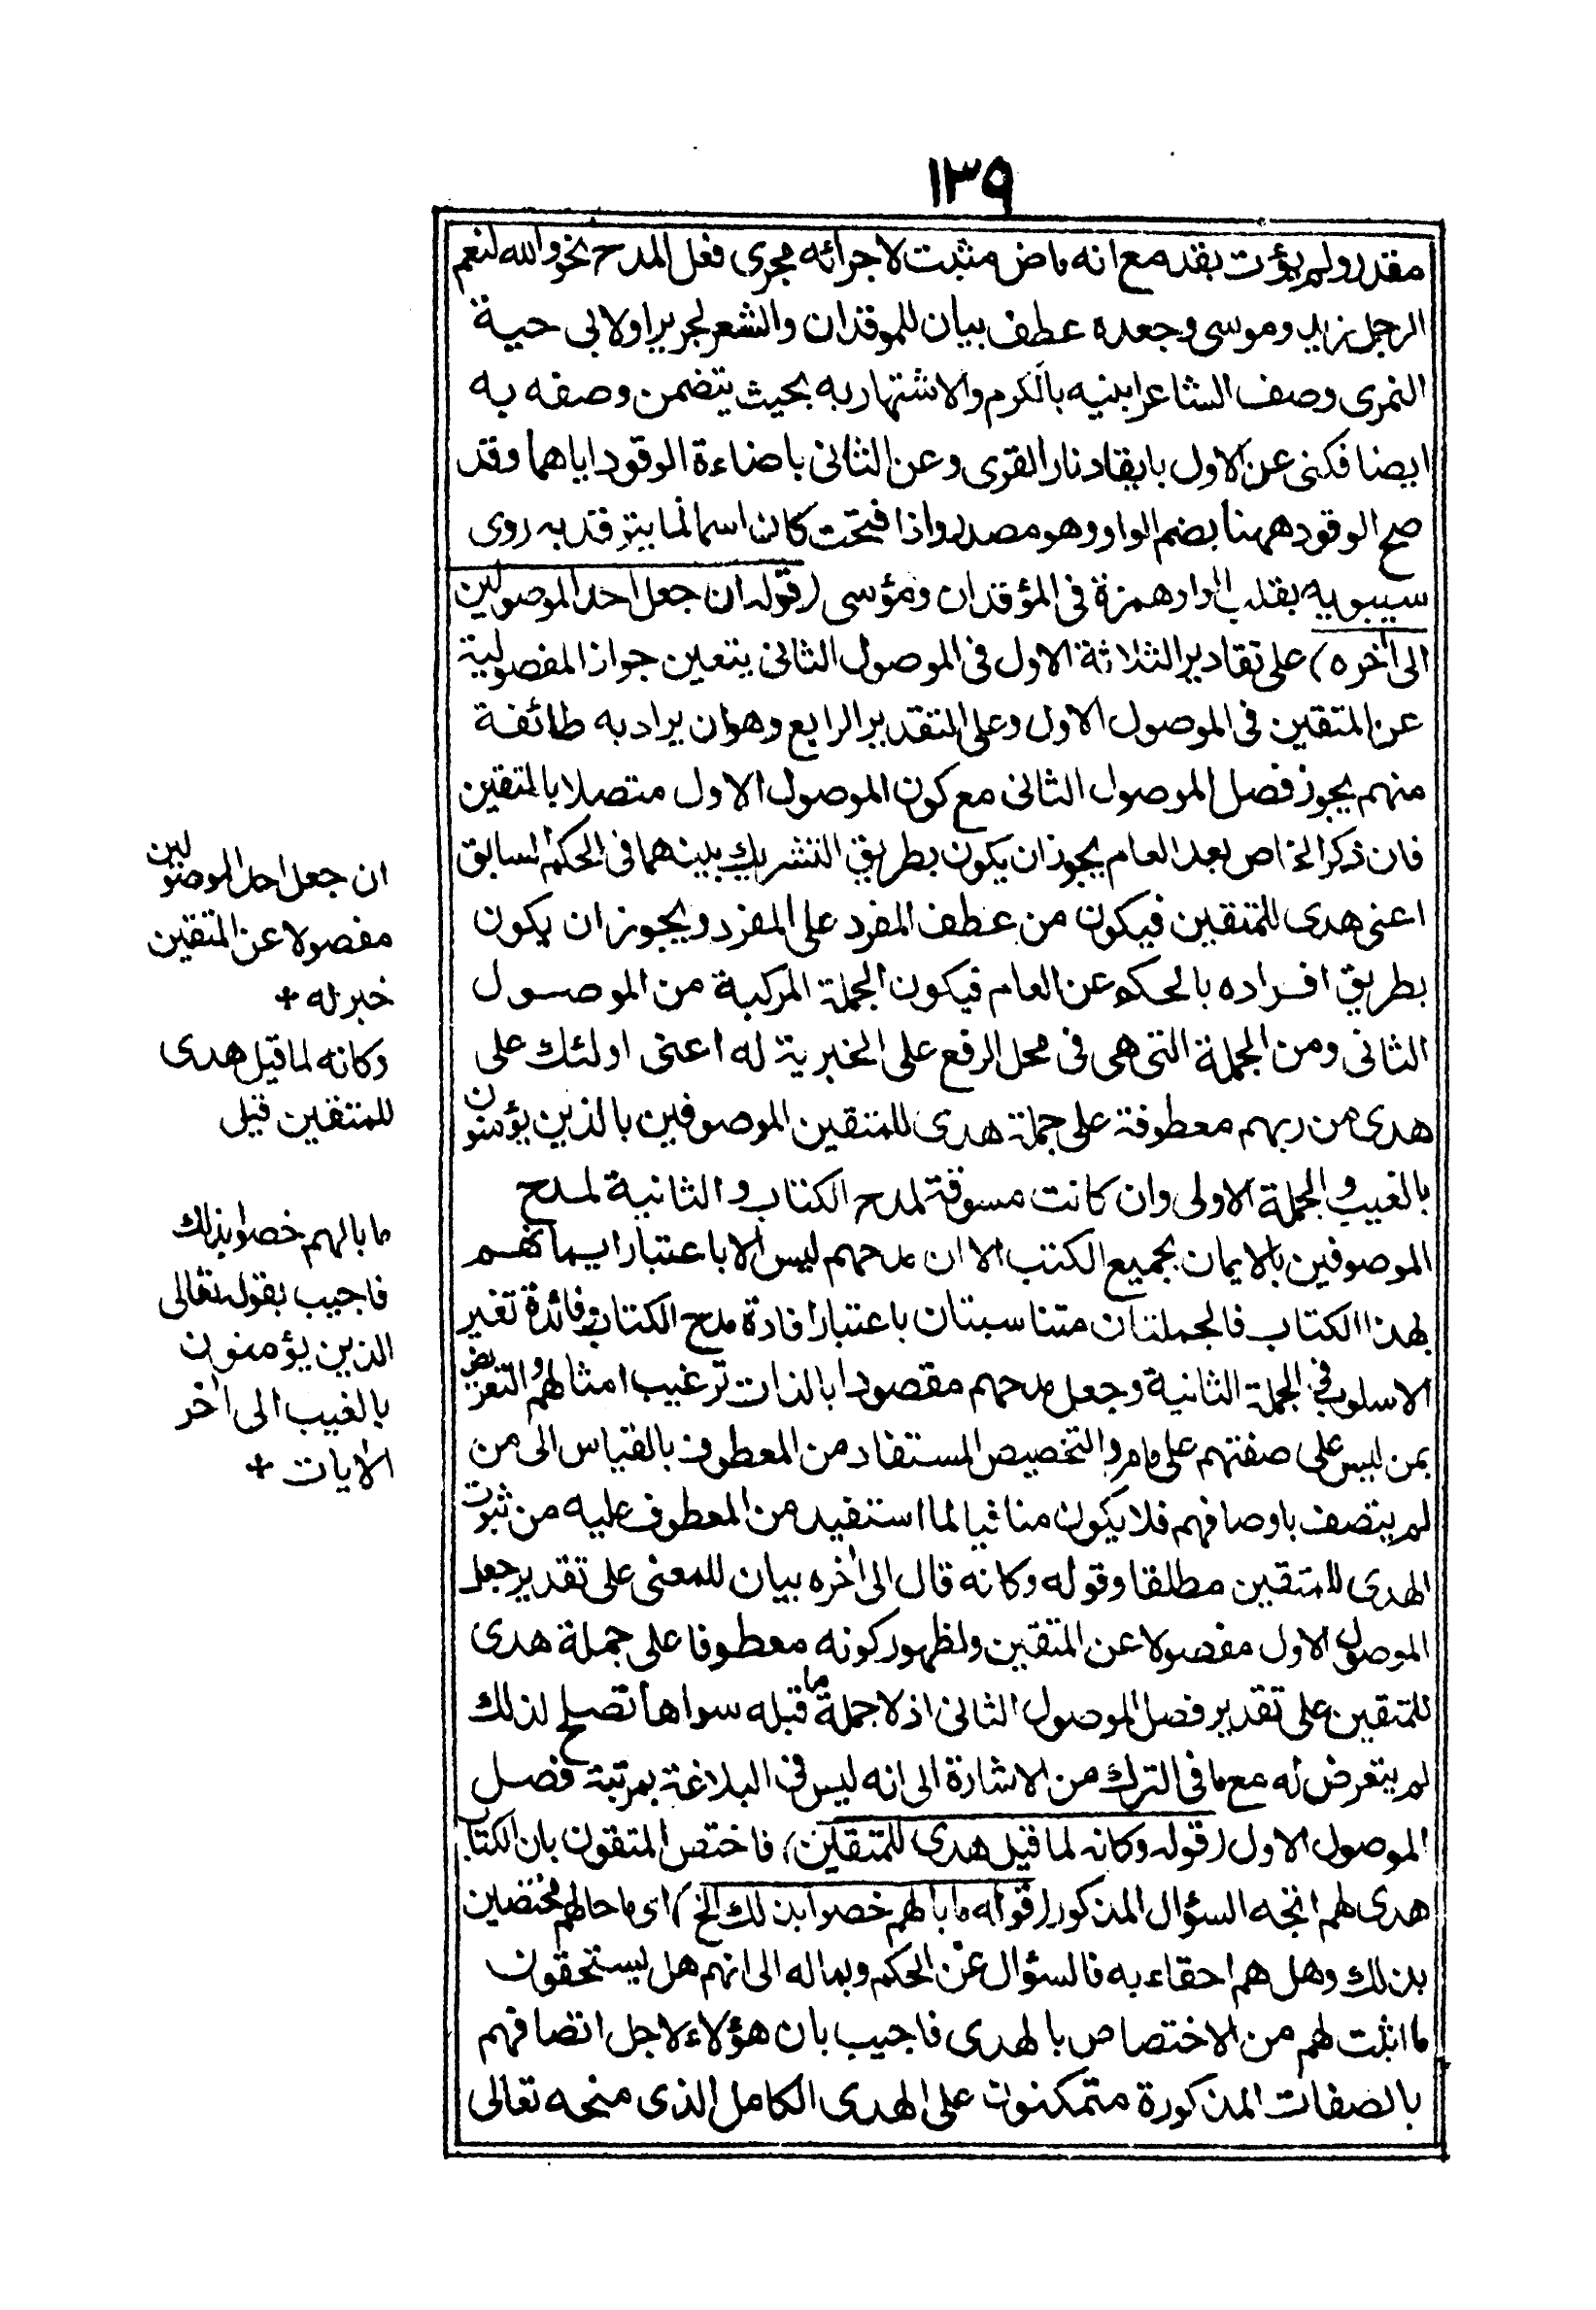 ١٣٩
مقدر ولم يؤت بقد مع انه ماض مثبت لاجرائه مجرى فعل المدح نحو والله لنعم
الرجل زيد وموسى وجعده عطف بيان للموقدان والشعر لجرير او لابى حية
النمرى وصف الشاعر ابنيه بالكرم والاشتهار به بحيث يتضمن وصفه به
ايضا فكنى عن الاول بايقاد نار القرى وعن الثانى باضاءة الوقود اياهما وقد
صح الوقود ههنا بضم الواو وهو مصدر واذا فتحت كان اسما لما يتوقد به روى
سيبويه بقلب الواو همزة فى المؤقدان ومؤسى (قوله ان جعل احد الموصولين
الى اخره) على تقادير الثلاثة الاول فى الموصول الثانى يتعين جواز المفصولية
عن المتقين فى الموصول الاول وعلى التقدير الرابع وهو ان يراد به طائفة
منهم يجوز فصل الموصول الثانى مع كون الموصول الاول متصلا بالمتقين
فان ذكر الخاص بعد العام يجوز ان يكون بطريق التشريك بينهما فى الحكم السابق
اعنى هدى للمتقين فيكون من عطف المفرد على المفرد ويجوز ان يكون
بطريق افراده بالحكم عن العام فيكون الجملة المركبة من الموصول
الثانى ومن الجملة التى هى فى محل الرفع على الخبرية له اعنى اولئك على
هدى من ربهم معطوفة على جملة هدى للمتقين الموصوفين بالذين يؤمنون
بالغيب والجملة الاولى وان كانت مسوقة لمدح الكتاب والثانية لمدح
الموصوفين بالايمان بجميع الكتب الا ان مدحهم ليس الا باعتبار ايمانهم
بهذا الكتاب فالجملتان متناسبتان باعتبار افادة مدح الكتاب وفائدة تغير
الاسلوب فى الجملة الثانية وجعل مدحهم مقصودا بالذات ترغيب امثالهم والتعريض
بمن ليس على صفتهم على ما مر والتخصيص المستفاد من المعطوف بالقياس الى من
لم يتصف باوصافهم فلا يكون منافيا لما استفيد من المعطوف عليه من ثبوت
الهدى للمتقين مطلقا وقوله وكانه قال الى اخره بيان للمعنى على تقدير جعل
الموصول الاول مفصولا عن المتقين ولظهور كونه معطوفا على جملة هدى
للمتقين على تقدير فصل الموصول الثانى اذ لا جملة ما قبله سواها تصلح لذلك
لم يتعرض له مع ما فى الترك من الاشارة الى انه ليس فى البلاغة بمرتبة فصل
الموصول الاول (قوله وكانه لما قيل هدى للمتقين) فاختص المتقون بان الكتاب
هدى لهم اتجه السؤال المذكور (قوله ما بالهم خصوا بذلك الخ) اى ما حالهم مختصين
بذلك وهل هم احقاء به فالسؤال عن الحكم وبماله الى انهم هل يستحقون
ما اثبت لهم من الاختصاص بالهدى فاجيب بان هؤلاء لاجل اتصافهم
بالصفات المذكورة متمكنون على الهدى الكامل الذى منحه تعالى
ان جعل احد الموصولين
مفصولا عن المتقين
خبر له +
وكانه لما قيل هدى
للمتقين قيل
ما بالهم خصوا بذلك
فاجيب بقوله تعالى
الذين يؤمنون
بالغيب الى اخر
الايات +